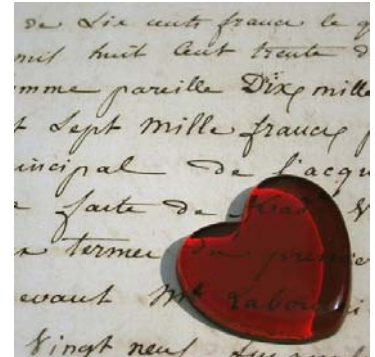 de Six cents francs le q
mil huit Cent trente d
omme pareille Dix mille
t Sept mille francs p
incipal de l'acqu
faite de
x termes du
evant Me Labou
Vingt neuf